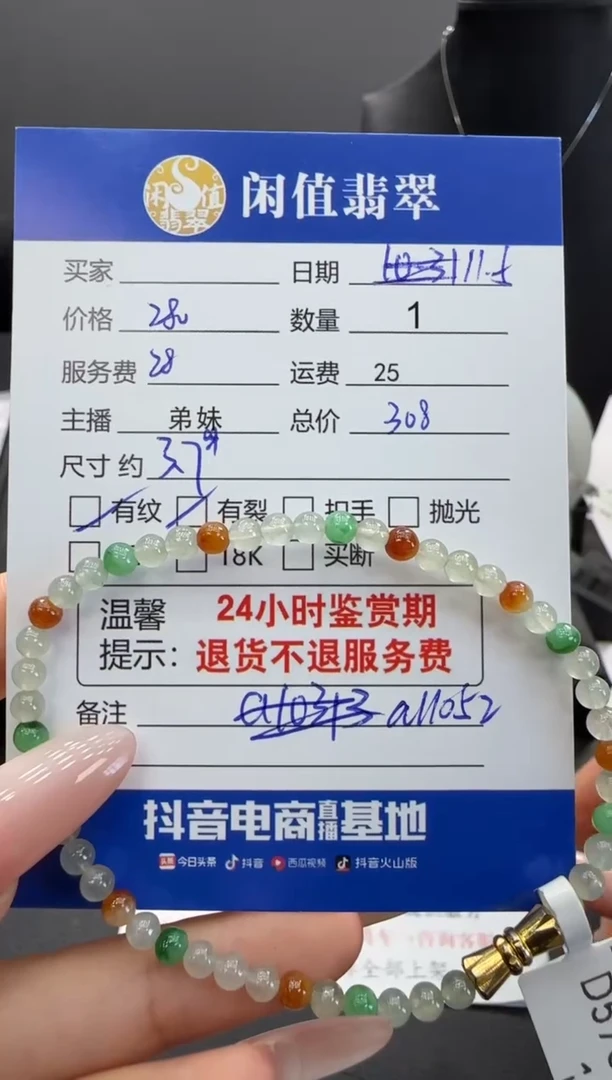 闲值翡翠 闲值翡翠
买家 日期 11.5
价格 280 数量 1
服务费 28 运费 25
主播 弟妹 总价 308
尺寸 约 3.7
有纹 有裂 扣手 抛光
18K 买断
温馨 24小时鉴赏期
提示: 退货不退服务费
备注 a11052
抖音电商直播基地
头条 今日头条 抖音 西瓜视频 抖音火山版
全部上架